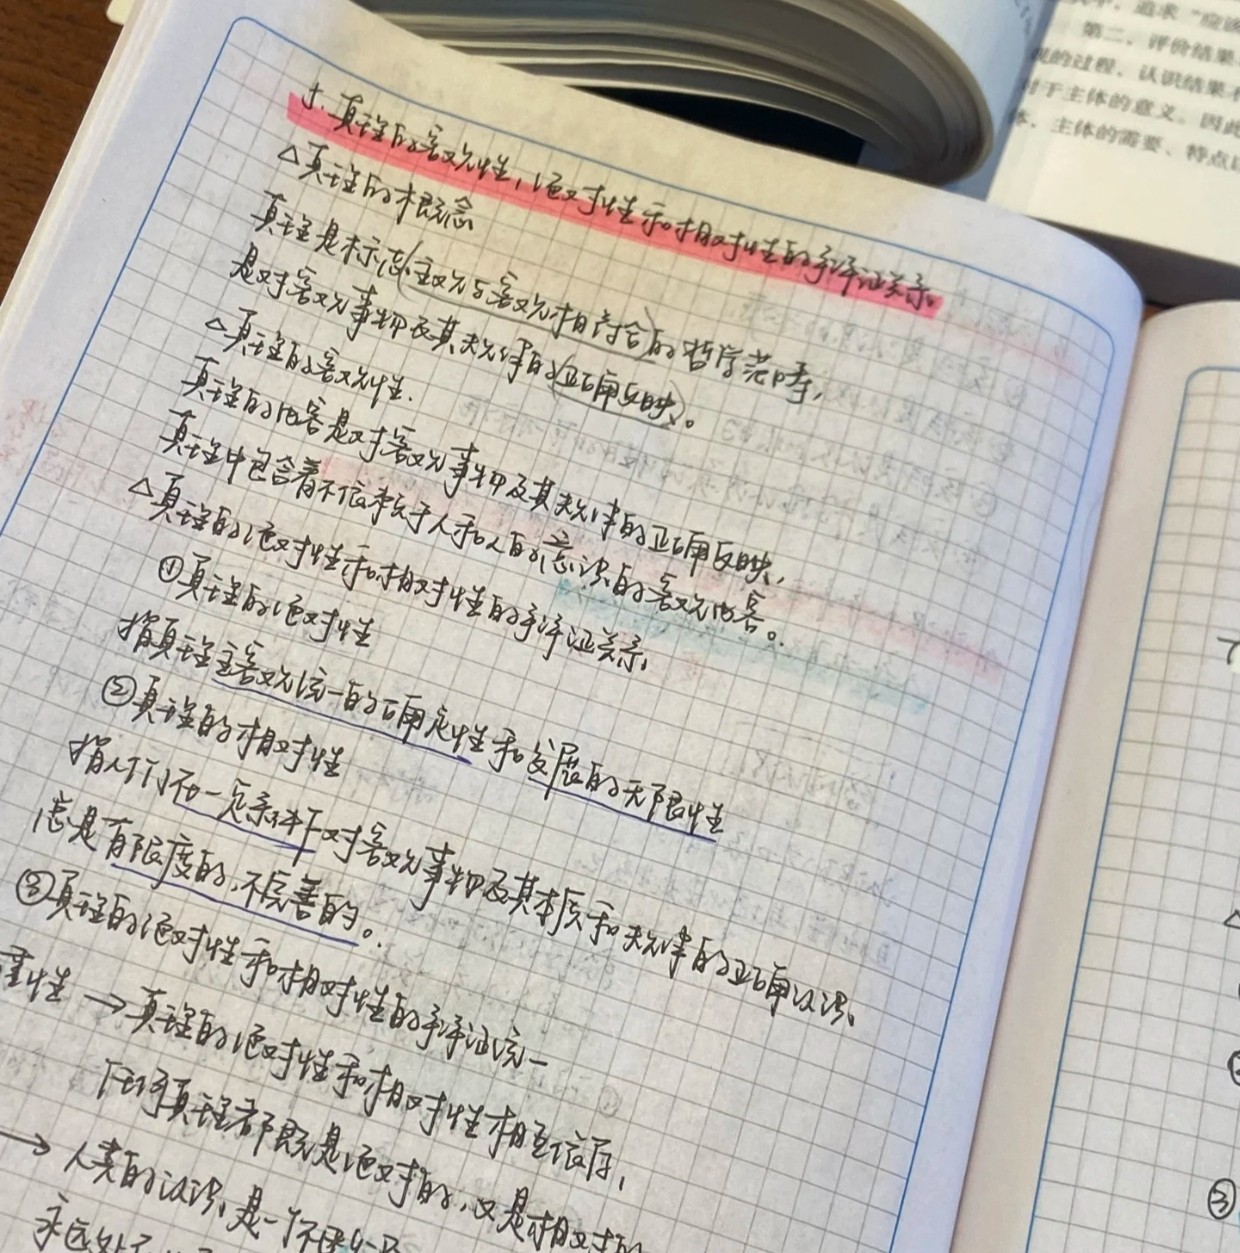 十. 真理的客观性,绝对性和相对性的辩证关系。
△真理的概念
真理是标志(主观与客观相符合)的哲学范畴,
是对客观事物及其规律的(正确反映)。
△真理的客观性.
真理的内容是对客观事物及其规律的正确反映,
真理中包含着不依赖于人和人的意识的客观内容。
△真理的绝对性和相对性的辩证关系,
①真理的绝对性
指真理主客观统一的确定性和发展的无限性
②真理的相对性
指人们在一定条件下对客观事物及其本质和规律的正确认识,
总是有限度的,不完善的。
③真理的绝对性和相对性的辩证统一
重性→真理的绝对性和相对性相互依存,
任何真理都既是绝对的,又是相对的
→人类的认识,是一个不
永远处于
追求“应该
第二,评价结果
的过程,认识结果
对于主体的意义。因此
体、主体的需要、特点
③